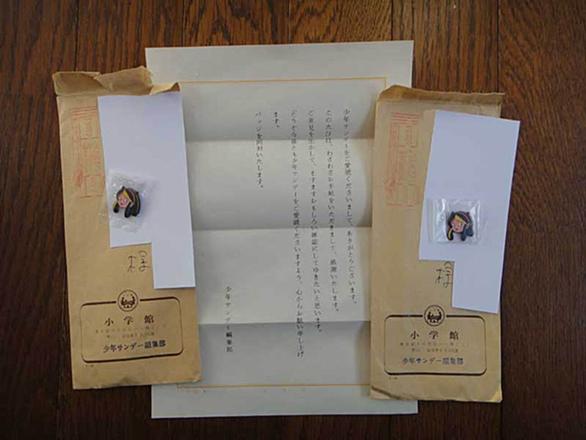 少年サンデーをご愛読くださいまして、ありがとうございます。
このたびは、わざわざお手紙をいただきまして、感謝いたします。
ご意見を生かして、ますますおもしろい雑誌にしてゆきたいと思います。
どうか今後とも少年サンデーをご愛読くださいますよう、心からお願い申し上げ
ます。
バッジを同封いたします。
少年サンデー編集部
様
小学館
少年サンデー編集部
様
小学館
少年サンデー編集部